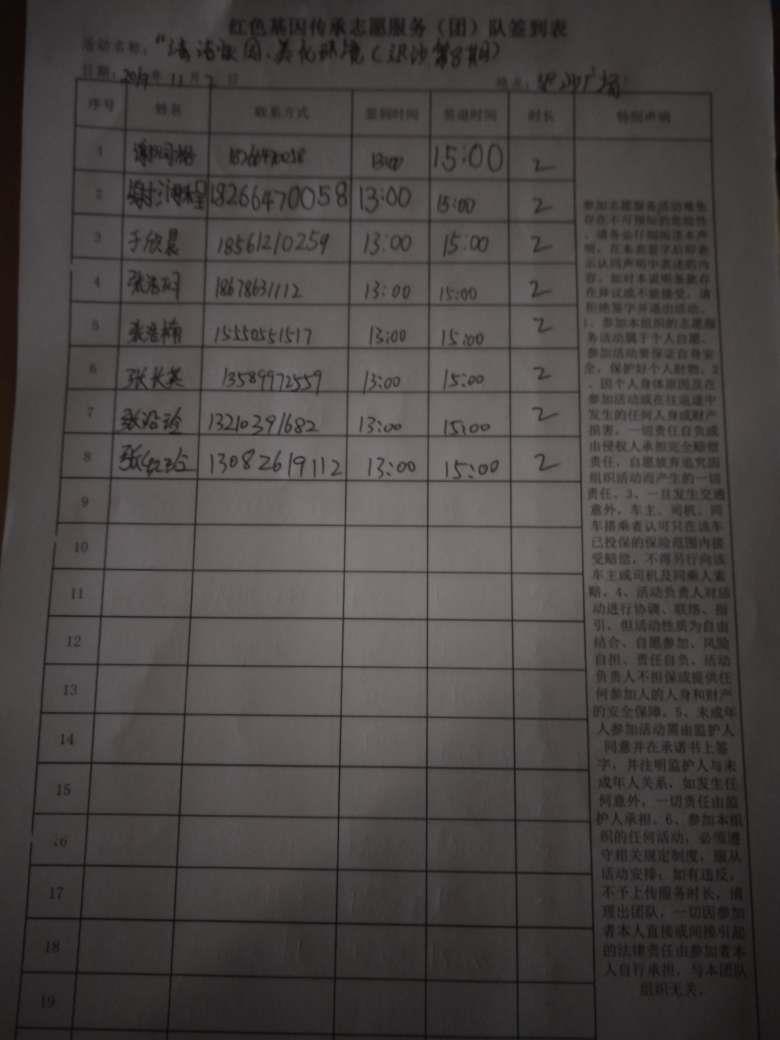 红色基因传承志愿服务（团）队签到表
活动名称：
日期：2019年11月2日 地点：
序号 姓名 联系方式 签到时间 签退时间 时长 特别声明
1 13:00 15:00 2
2 18266470058 13:00 15:00 2
3 于欣晨 18561210259 13:00 15:00 2
4 18678631112 13:00 15:00 2
5 张浩楠 15550551517 13:00 15:00 2
6 张长英 13589972559 13:00 15:00 2
7 13210391682 13:00 15:00 2
8 张红玲 13082619112 13:00 15:00 2
9
10
11
12
13
14
15
16
17
18
19
参加志愿服务活动难免
存在不可预知的危险性
，请务必仔细阅读本声
明，在本表签字后即表
示认同声明中表述的内
容。如对本说明条款存
在异议或不能接受，请
拒绝签字并退出活动。
1、参加本组织的志愿服
务活动属于个人自愿。
参加活动要保证自身安
全，保护好个人财物。2
、因个人身体原因及在
参加活动或在往返途中
发生的任何人身或财产
损害，一切责任自负或
由侵权人承担完全赔偿
责任，自愿放弃追究因
组织活动而产生的一切
责任。3、一旦发生交通
意外，车主、司机、同
车搭乘者认可只在该车
已投保的保险范围内接
受赔偿，不得另行向该
车主或司机及同乘人索
赔。4、活动负责人对活
动进行协调、联络、指
引，但活动性质为自由
结合、自愿参加、风险
自担、责任自负。活动
负责人不担保或提供任
何参加人的人身和财产
的安全保障。5、未成年
人参加活动需由监护人
同意并在承诺书上签
字，并注明监护人与未
成年人关系，如发生任
何意外，一切责任由监
护人承担。6、参加本组
织的任何活动，必须遵
守相关规定制度，服从
活动安排；如有违反，
不予上传服务时长，清
理出团队，一切因参加
者本人直接或间接引起
的法律责任由参加者本
人自行承担，与本团队
组织无关。